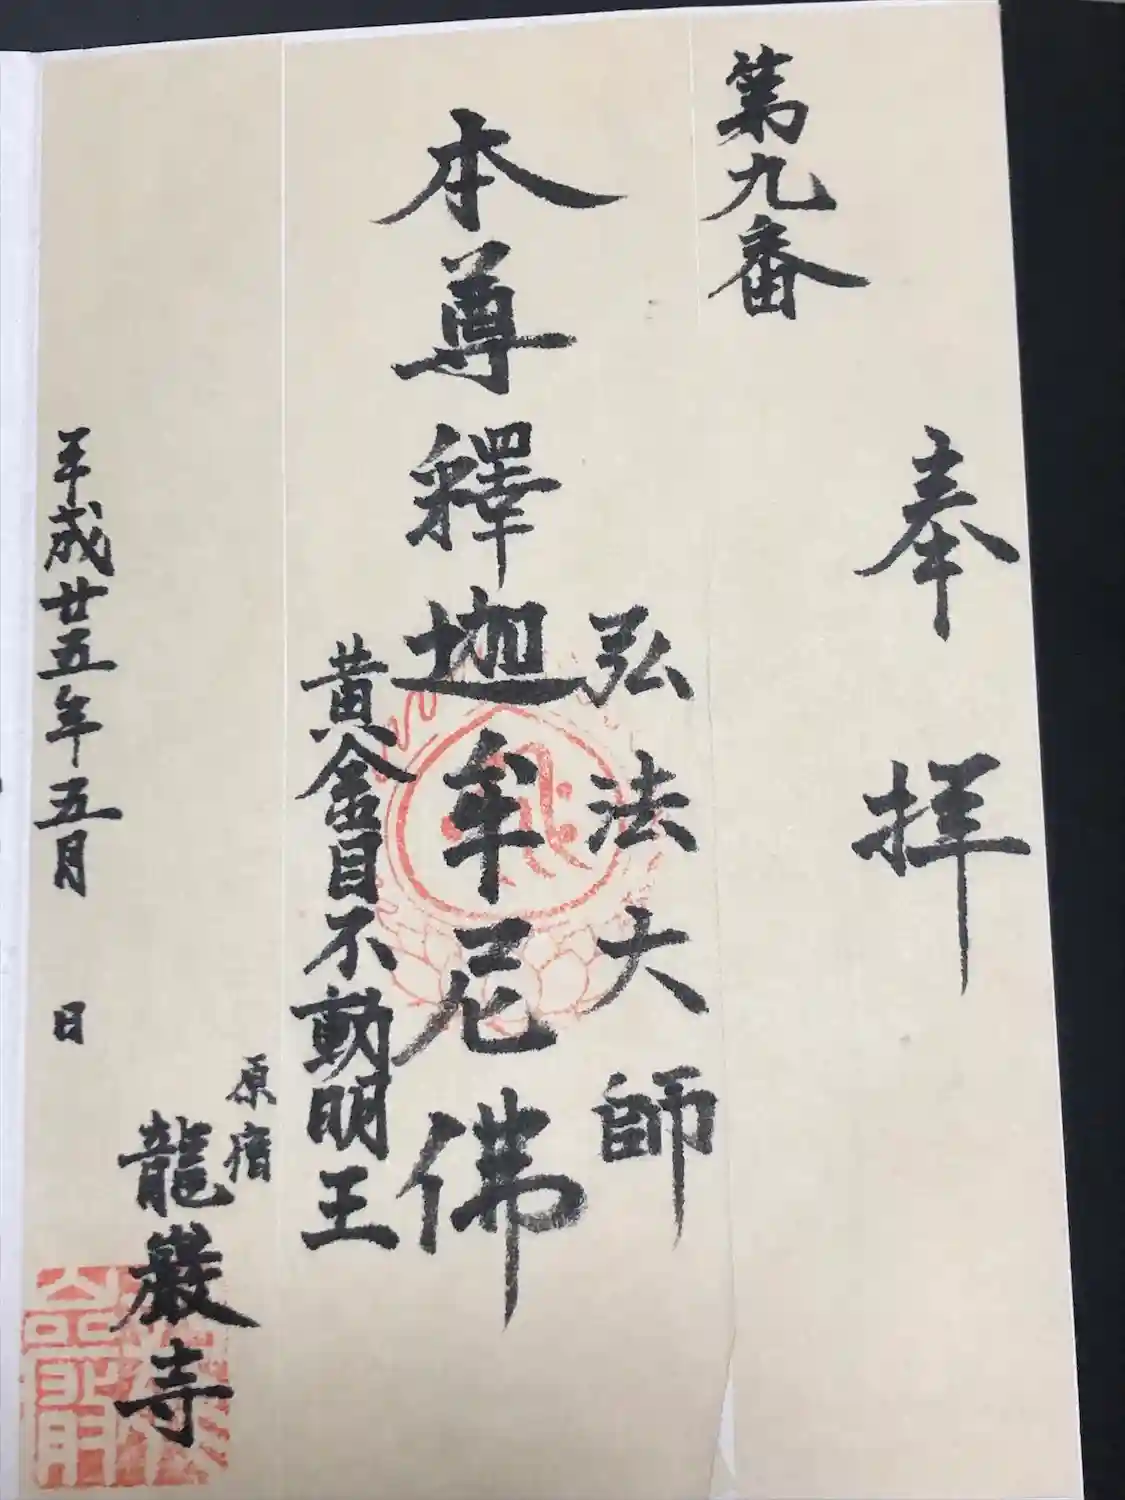 奉拝
第九番
弘法大師
本尊釋迦牟尼佛
黄金目不動明王
原宿
龍巖寺
平成廿五年五月 日